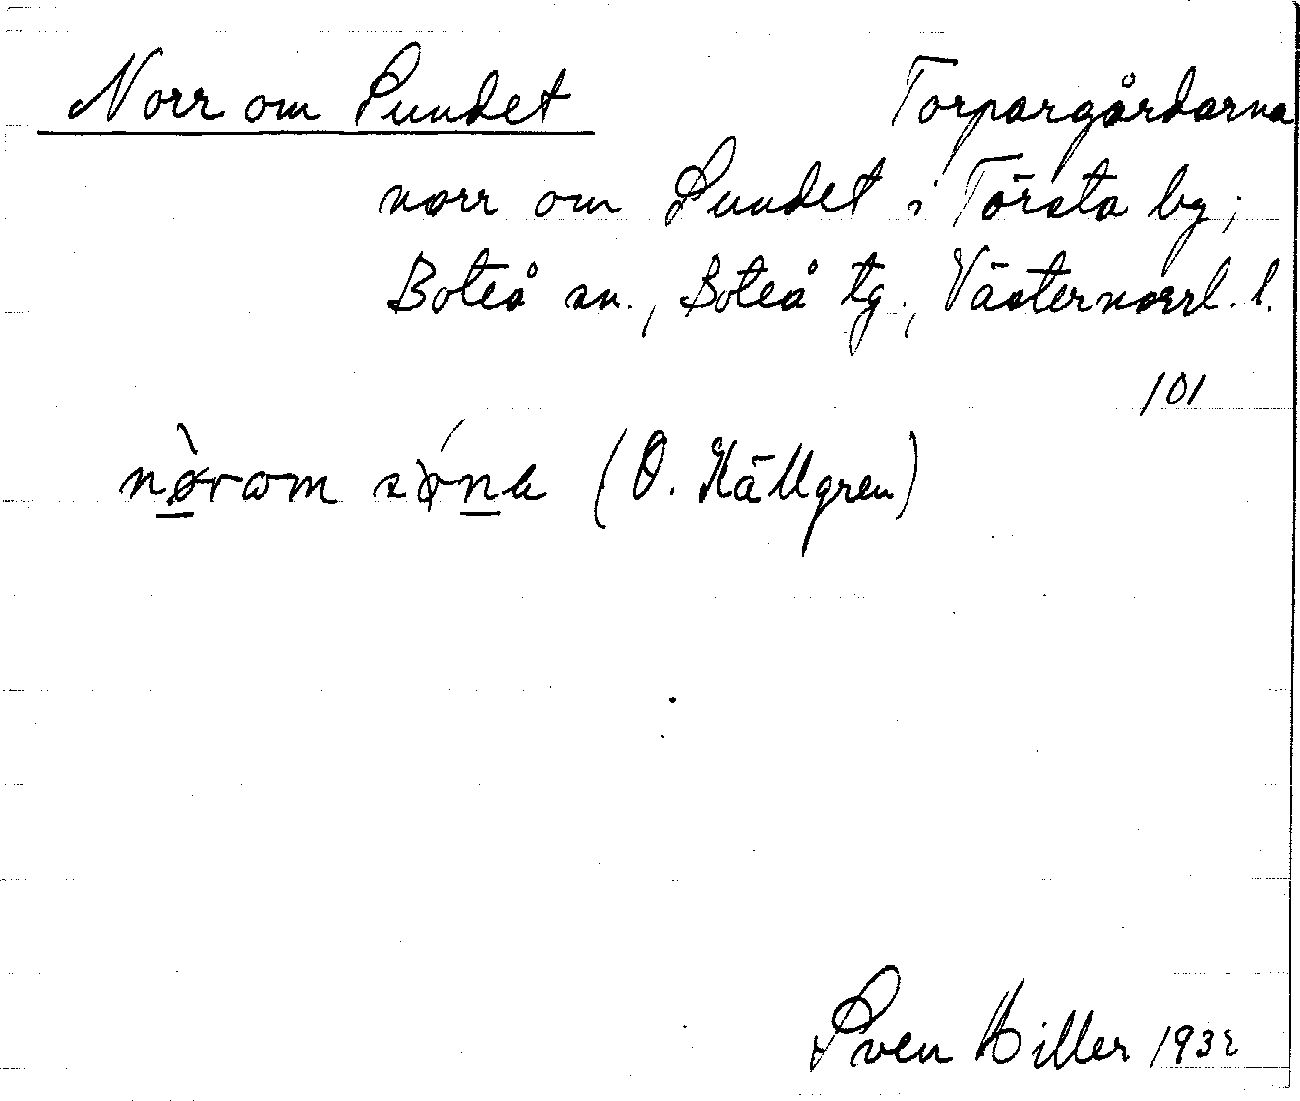 Norr om Sundet Torpargårdarna
norr om Sundet i Törsta by;
Boteå sn., Boteå tg., Västernorrl. l.
101
(O. Källgren)
Sven Hiller 1932